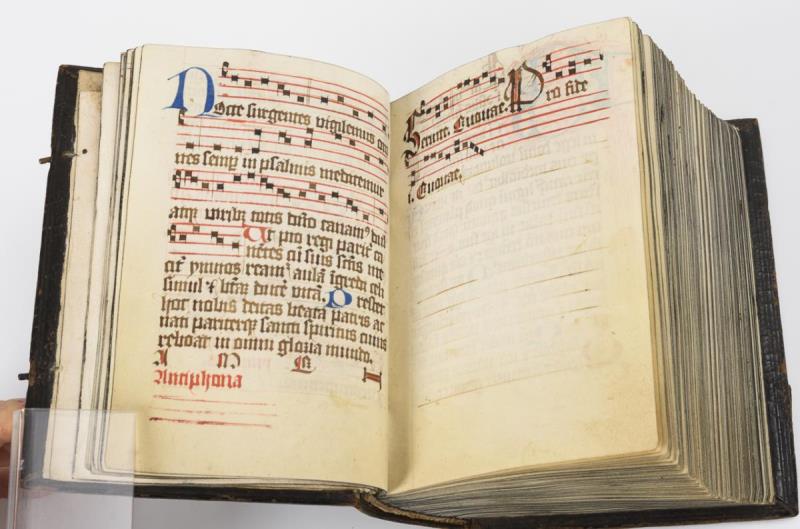 Nocte surgentes vigilemus om
nes semp in psalmis meditemur
atqz viribz totis dño canam9 dul
Ut pio regi parit̃ ca
netes cũ suis sctis me
citer ymnos ream aulã igredi celi
simul & btam ducẽ vitã. Prestet
hoc nobis deitas beata patris ac
nati pariterqz sancti spiritus cuius
reboat in omni gloria mundo.
A M E
Antiphona
Seruite. Euouae. Pro fide
i. Euouae.